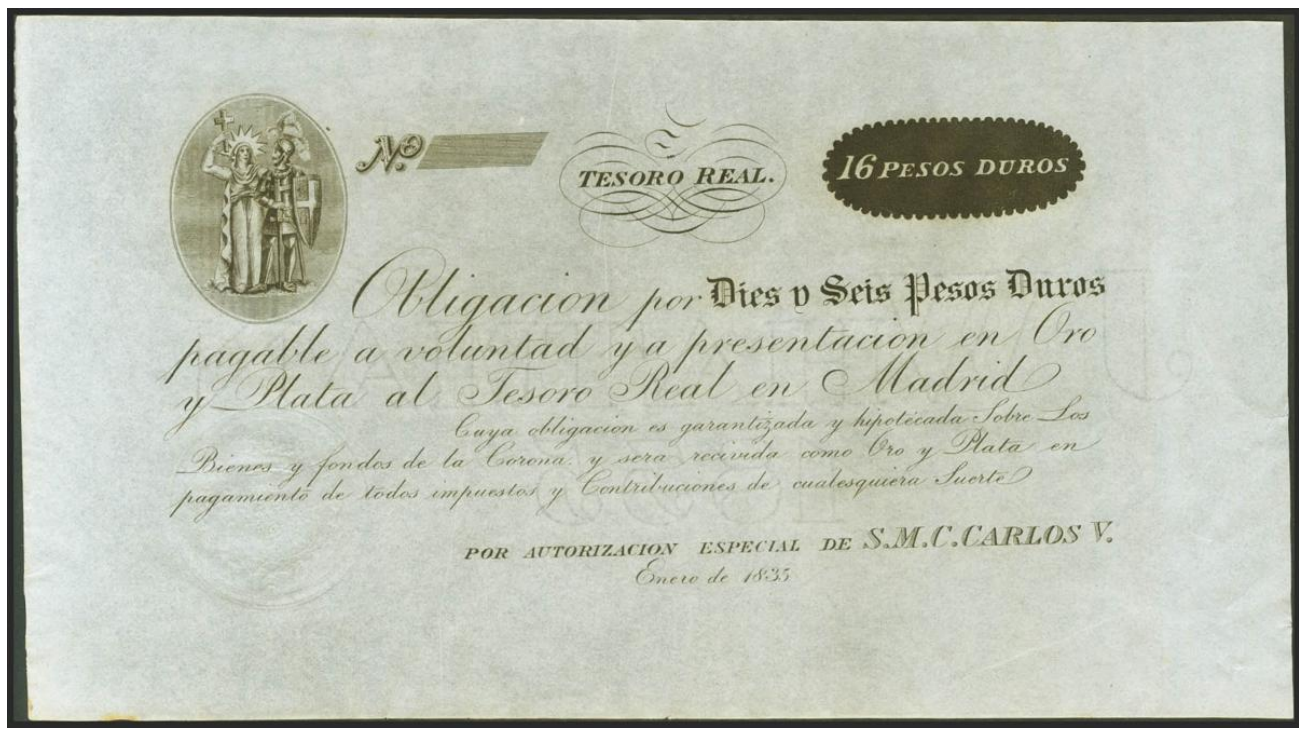 No.
TESORO REAL.
16 PESOS DUROS
Obligacion por Dies y Seis Pesos Duros
pagable a voluntad y a presentacion en Oro
y Plata al Tesoro Real en Madrid
Cuya obligacion es garantizada y hipotécada Sobre Los
Bienes y fondos de la Corona y sera recivida como Oro y Plata en
pagamiento de todos impuestos y Contribuciones de cualesquiera Suerte
POR AUTORIZACION ESPECIAL DE S.M.C.CARLOS V.
Enero de 1835